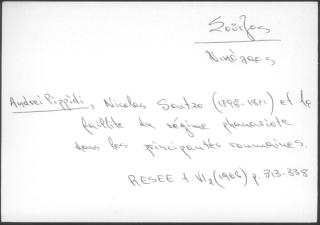 Σούτζος
Νικόλαος
Andrei Pippidi, Nicolas Soutzo (1798-1871) et la
faillite du régime phanariote
dans les principautés roumaines.
RESEE t. VI₂ (1968) p. 313-338